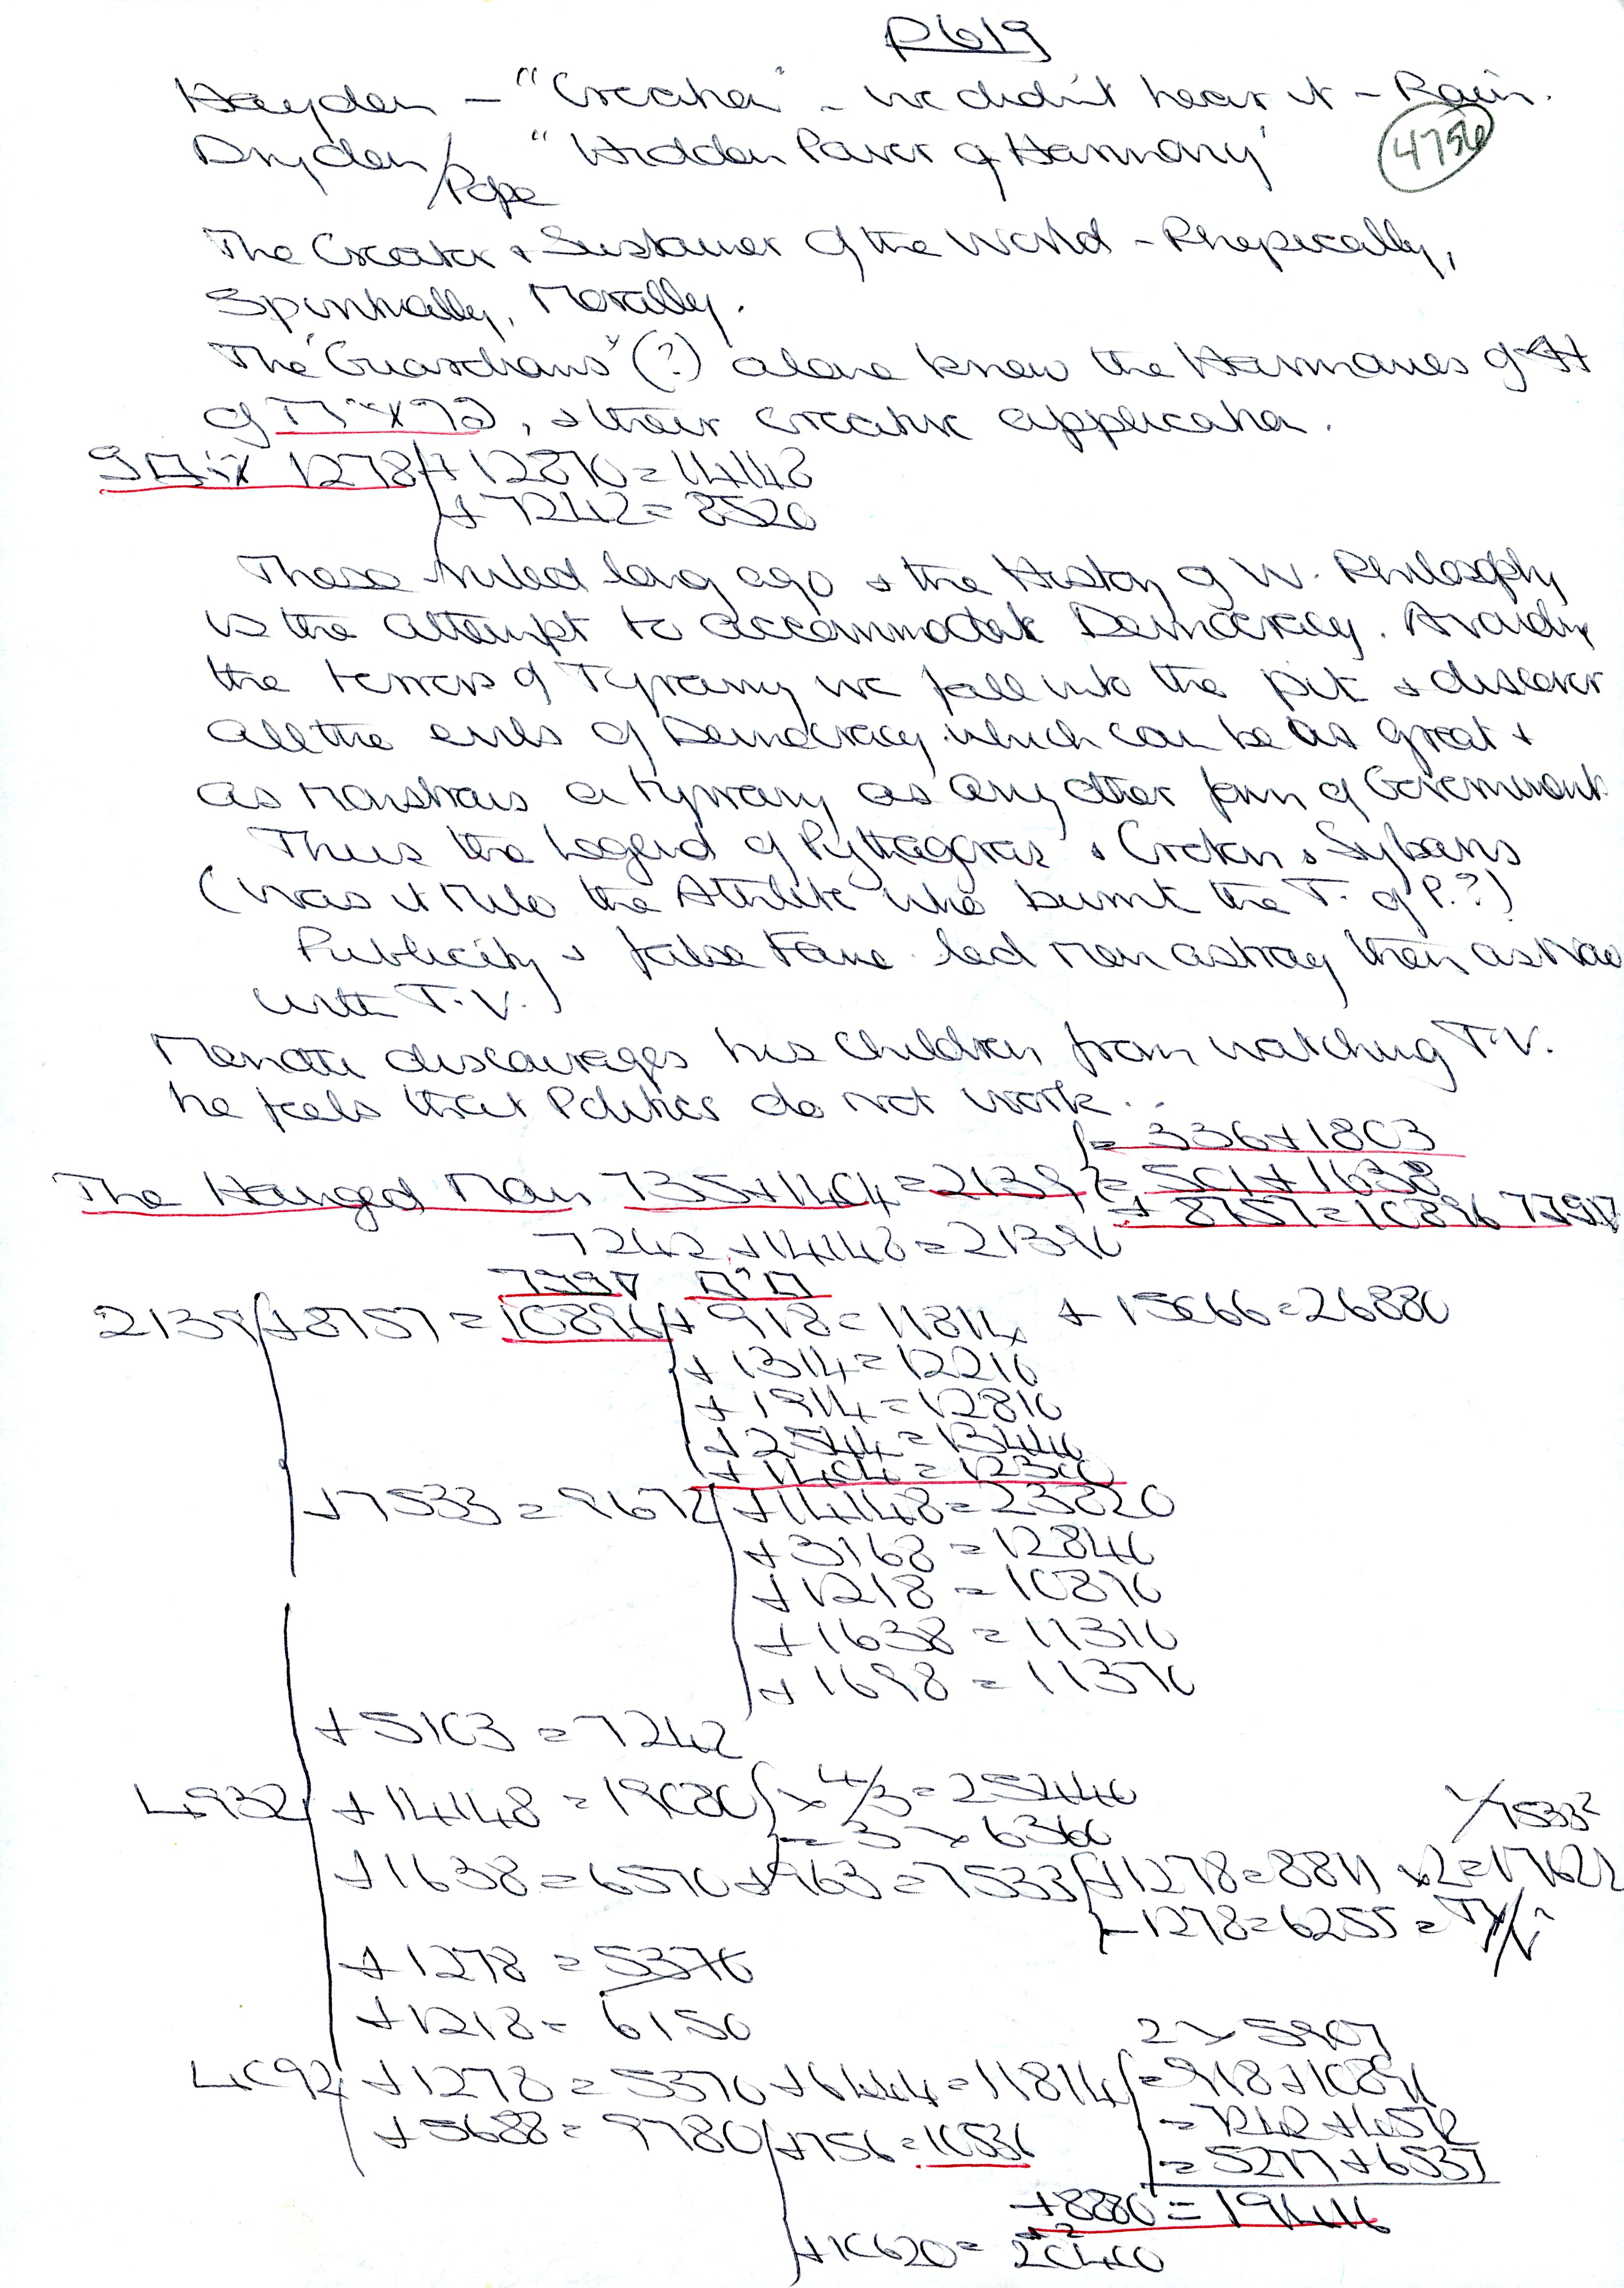 P619
Hayden – "Creation" – we didn't hear it – Rain.
4756
Dryden/Pope "Hidden Power of Harmony"
The Creator + Sustainer of the World – Physically,
Spiritually, Morally.
The "Guardians" (?) alone knew the Harmonies of
of , + their creative application.
1278 + 12870 = 14148
+ 7242 = 8520
These ruled long ago + the History of W. Philosophy
is the attempt to accommodate Democracy. Avoiding
the terrors of Tyranny we fall into the pit + discover
all the evils of Democracy which can be as great +
as monstrous a tyranny as any other form of Government
Thus the Legend of Pythagoras + Croton + Sybaris
(Was it Milo the Athlete who burnt the T. of P.?)
Publicity + false Fame led men astray then as Now
with T.V.
Menotti discourages his children from watching T.V.
he feels that Politics do not work.
= 336 + 1803
The Hanged Man 735 + 1404 = 2139 = 501 + 1638
+ 8757 = 10896
7242 + 14148 = 21390
2139 + 8757 = 10896 + 918 = 11814 + 15066 = 26880
+ 1314 = 12210
+ 1914 = 12810
+ 2544 = 13440
+ 1404 = 12300
+ 7533 = 9672 + 14148 = 23820
+ 3168 = 12840
+ 1218 = 10890
+ 1638 = 11310
+ 1698 = 11370
+ 5103 = 7242
4932 + 14148 = 19080 × 4/3 = 25440
= 3 × 6360
√7533²
+ 1638 = 6570 + 963 = 7533 + 1278 = 8811 × 2 = 17622
– 1278 = 6255 =
+ 1278 = 5370
+ 1218 = 6150
2 × 5907
4092 + 1278 = 5370 + 6444 = 11814 = 918 + 10896
+ 5688 = 9780 + 756 = 10536
= 7242 + 4572
= 5277 + 6537
+ 8880 = 19416
+ 10620 = 20400